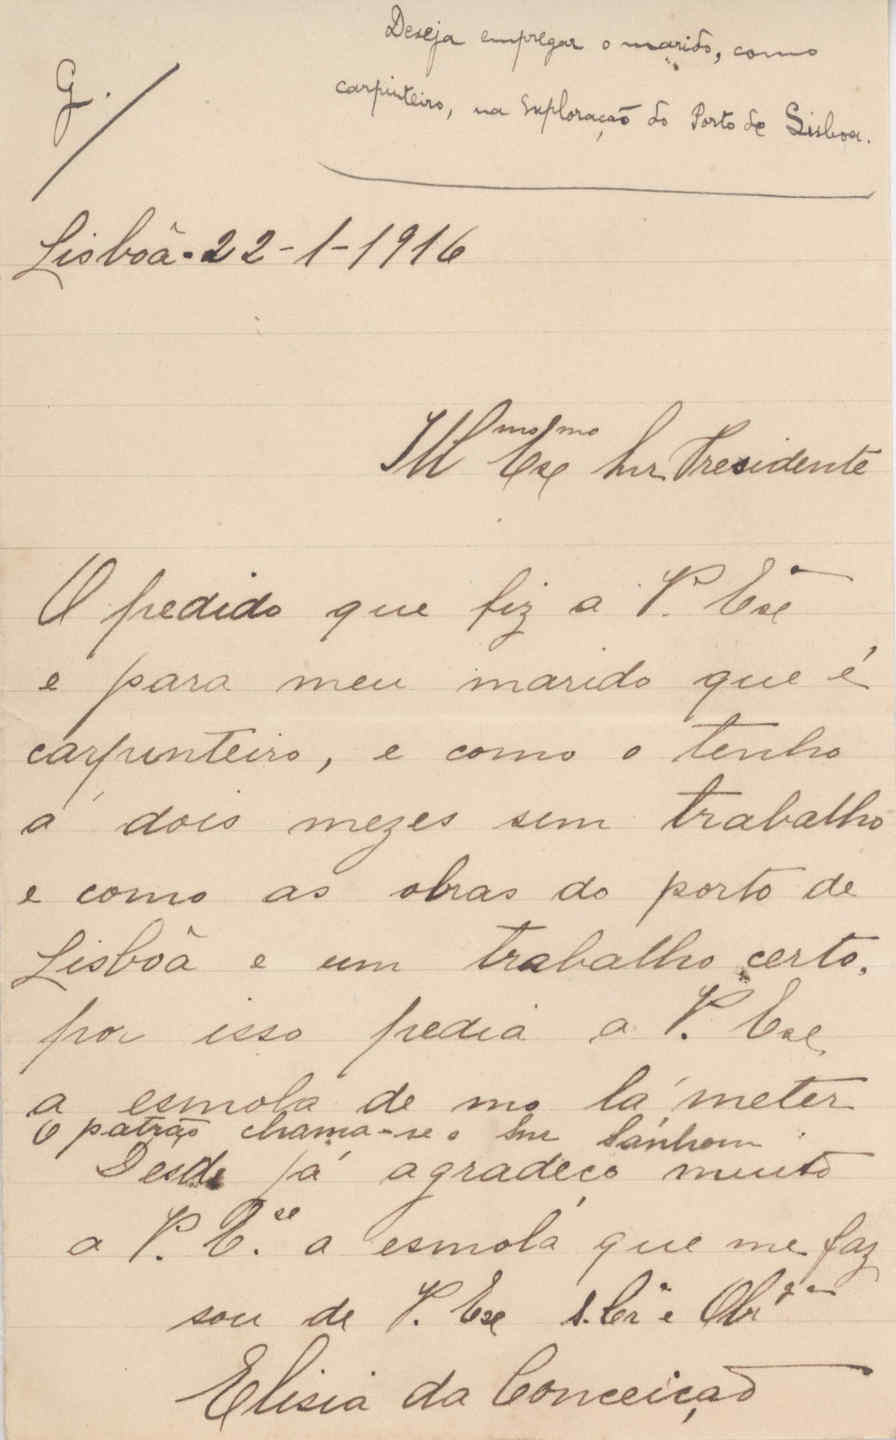 Deseja empregar o marido, como
carpinteiro, na Exploração do Porto de Lisboa.
G.
Lisboâ-22-1-1916
Ill^mo Ex^mo Snr Presidente
O pedido que fiz a V. Exª
e para meu marido que é
carpinteiro, e como o tenho
á dois mezes sem trabalho
e como as obras do porto de
Lisboâ e um trabalho certo,
por isso pedia a V. Exe
a esmola de mo lá meter
O patrão chama-se o Snr
Desde já agradeço muito
a V. E.xe a esmola que me faz
sou de V. Exe S. Crª e Obrª
Elisia da Conceição